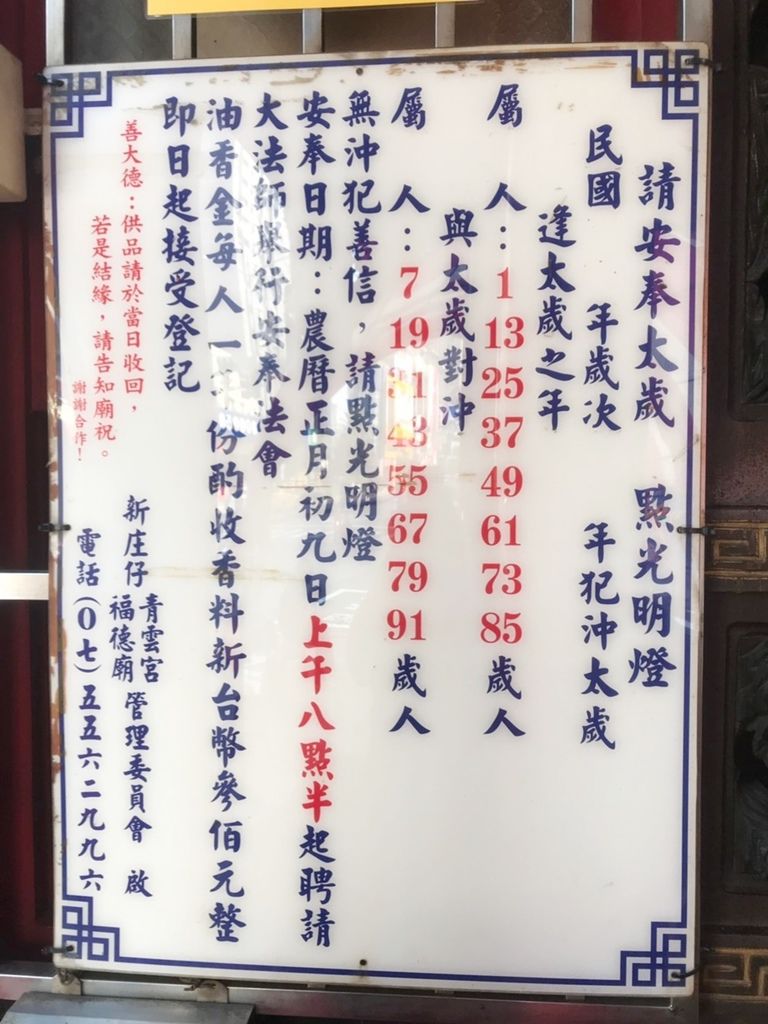 請安奉太歲 點光明燈
民國 年歲次 年犯沖太歲
逢太歲之年
屬 人：1 13 25 37 49 61 73 85 歲人
與太歲對沖
屬 人：7 19 31 43 55 67 79 91 歲人
無沖犯善信，請點光明燈
安奉日期：農曆正月初九日上午八點半起聘請
大法師舉行安奉法會
油香金每人一 份酌收香料新台幣參佰元整
即日起接受登記
善大德：供品請於當日收回，
若是結緣，請告知廟祝。
謝謝合作！
新庄仔 青雲宮 福德廟 管理委員會 啟
電話(０七)五五六二九九六